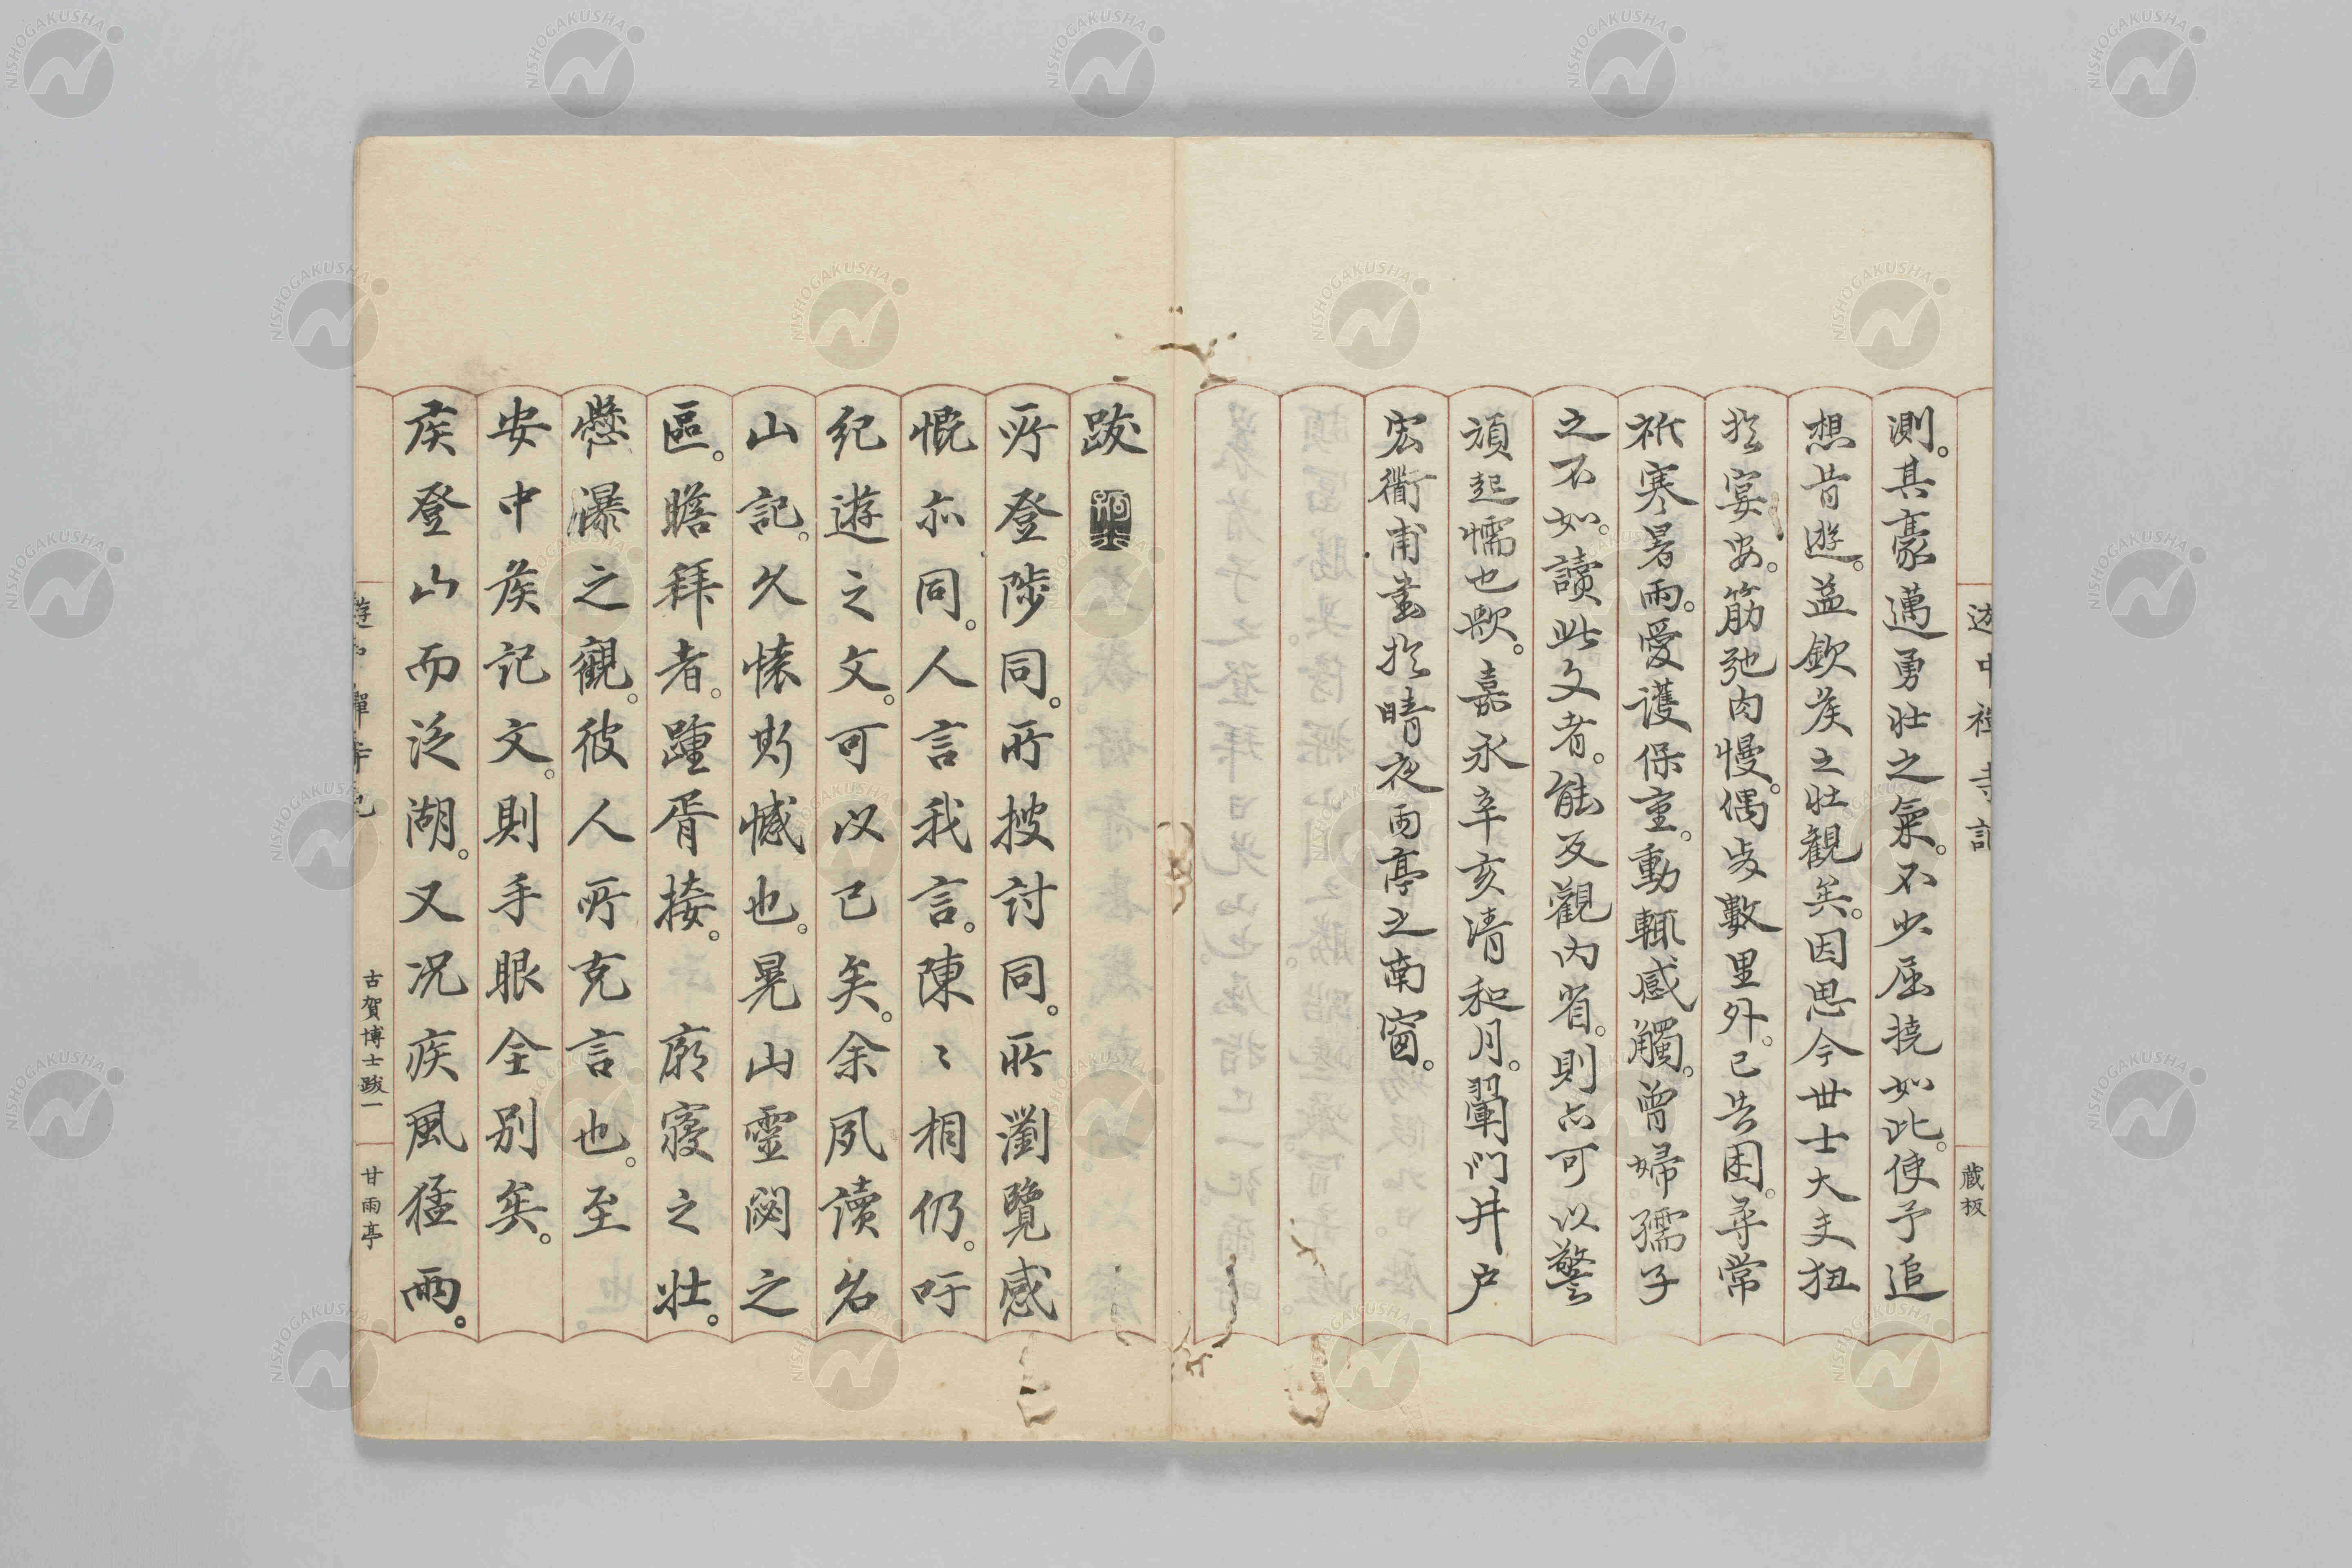 測。其豪邁勇壯之氣。不少屈撓如此。使予追
想昔遊。益欽矦之壯觀矣。因思今世士大夫狃
於宴安。筋弛肉慢。偶步數里外。已告困。尋常
祈寒暑雨。愛護保重。動輒感觸。曾婦孺子
之不如。讀此文者。能反觀內省。則亦可以警
頑起懦也歟。嘉永辛亥清和月。鞏門井戶
宏衢甫書於晴夜雨亭之南窗。
跋
所登陟同。所搜討同。所瀏覽感
慨亦同。人言我言。陳〻相仍。吁
紀遊之文。可以已矣。余夙讀名
山記。久懷斯憾也。晃山靈閟之
區。瞻拜者。踵胥接。廟寢之壯。
懸瀑之觀。彼人所克言也。至
安中矦記文。則手眼全別矣。
矦登山而泛湖。又況疾風猛雨。
遊中禪寺記
蔵板
古賀博士跋一
甘雨亭
NISHOGAKUSHA